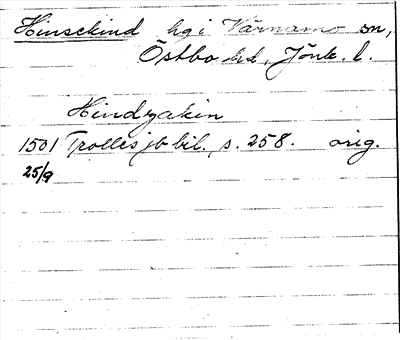 Hinsekind hg i Värnamo sn,
Östbo hd, Jönk. l.
Hindzakin
1501 Trolles jb bil., s. 258. orig.
25/9